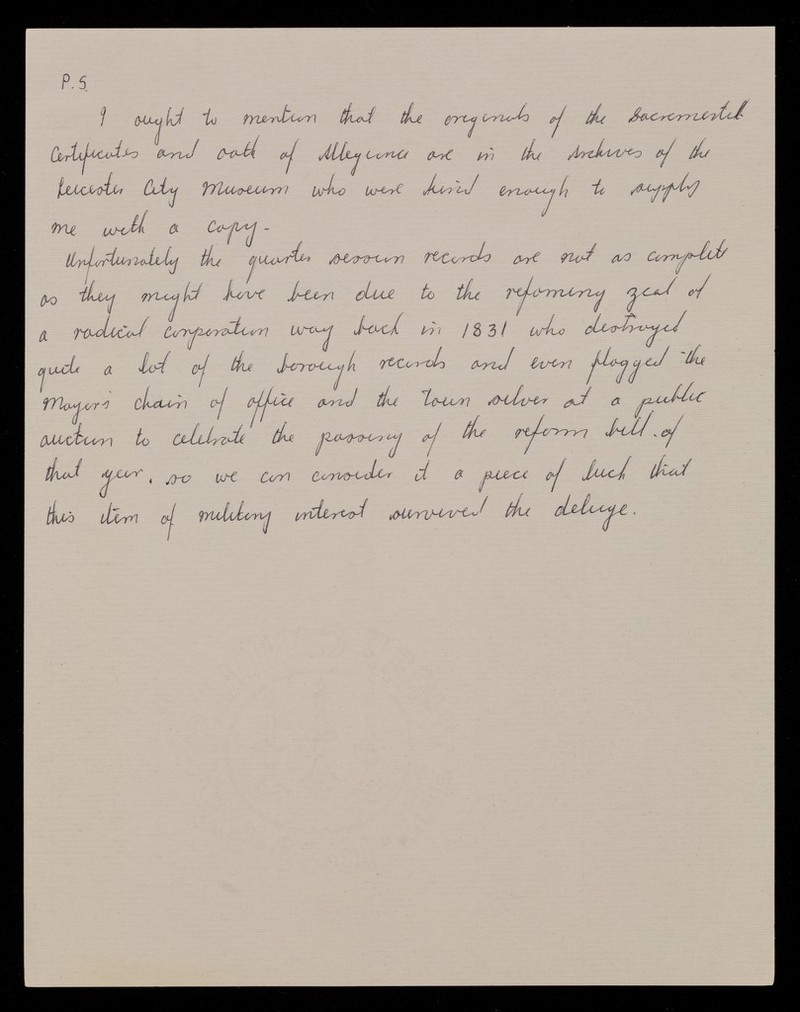 P.S.
I ought to mention that the originals of the Sacremental
Certificates and oath of Allegiance are in the Archives of the
Leicester City Museum who were kind enough to supply
me with a copy.
Unfortunately the quarter session records are not as complete
as they might have been due to the reforming zeal of
a radical corporation way back in 1831 who destroyed
quite a lot of the borough records and even flogged the
Mayor's chain of office and the Town silver at a public
auction to celebrate the passing of the reform bill of
that year, so we can consider it a piece of luck that
this item of military interest survived the deluge.